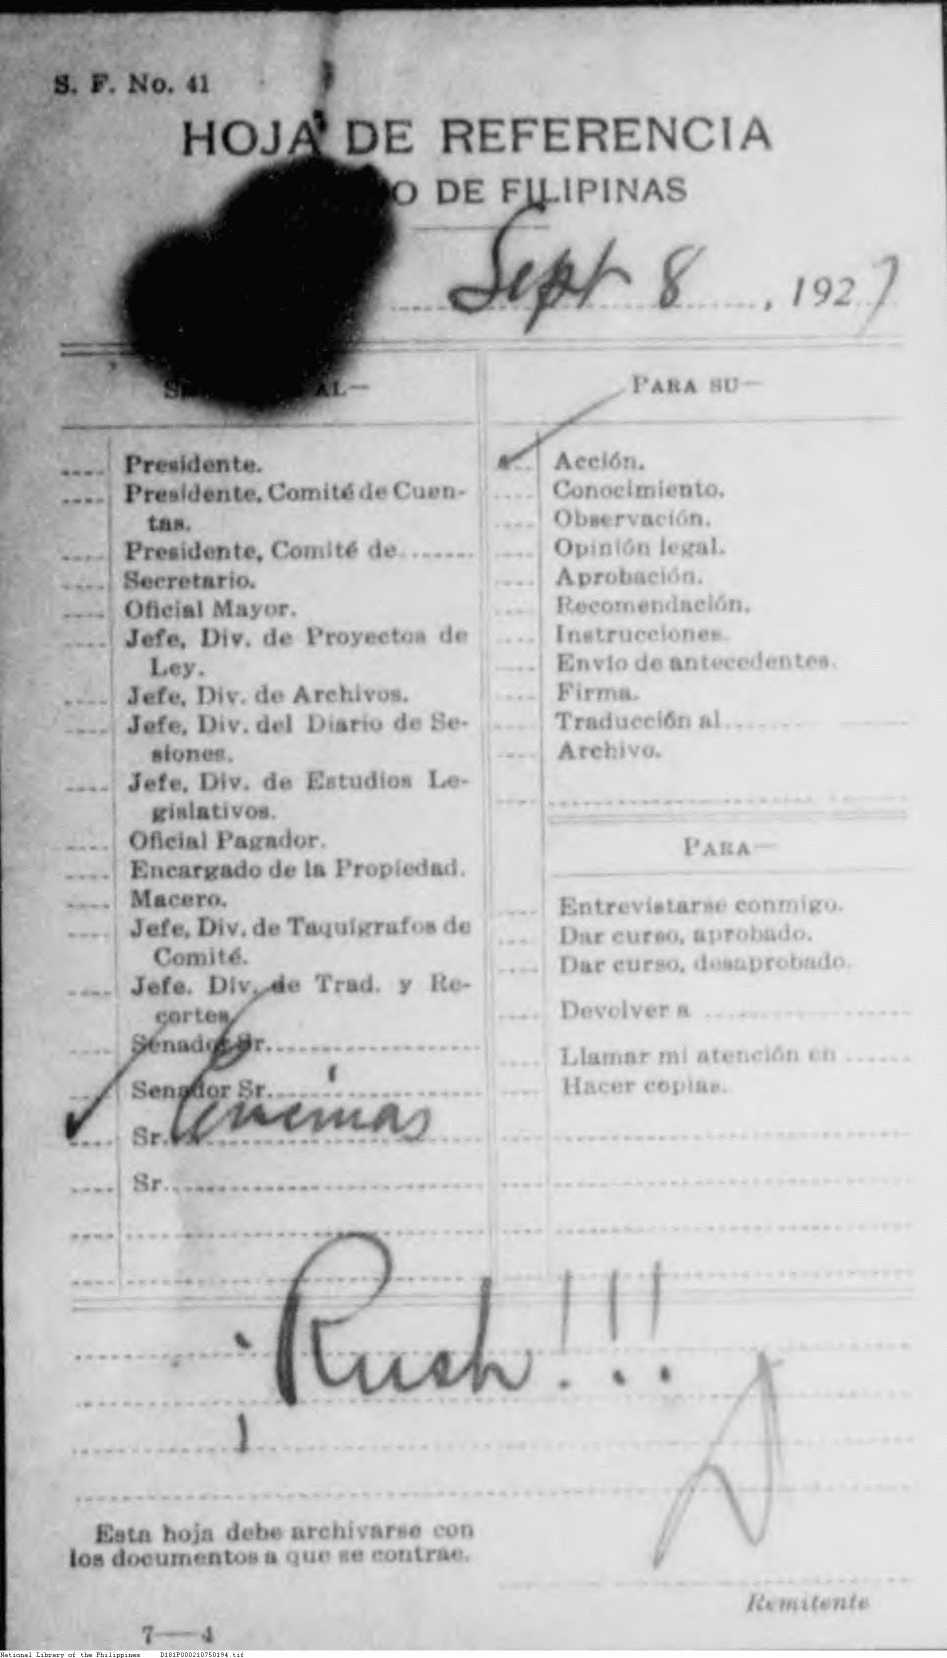 S. F. No. 41
HOJA DE REFERENCIA
O DE FILIPINAS
Sept 8, 1927
AL—
Presidente.
Presidente, Comité de Cuen-
tas.
Presidente, Comité de
Secretario.
Oficial Mayor.
Jefe, Div. de Proyectos de
Ley.
Jefe, Div. de Archivos.
Jefe, Div. del Diario de Se-
siones.
Jefe, Div. de Estudios Le-
gislativos.
Oficial Pagador.
Encargado de la Propiedad.
Macero.
Jefe, Div. de Taquígrafos de
Comité.
Jefe. Div. de Trad. y Re-
cortes.
Senador Sr.
Senador Sr.
Sr.
Sr.
PARA SU—
Acción.
Conocimiento.
Observación.
Opinión legal.
Aprobación.
Recomendación.
Instrucciones.
Envío de antecedentes.
Firma.
Traducción al
Archivo.
PARA—
Entrevistarse conmigo.
Dar curso, aprobado.
Dar curso, desaprobado.
Devolver a
Llamar mi atención en
Hacer copias.
¡Rush!!!
Esta hoja debe archivarse con
los documentos a que se contrae.
Remitente
7—4
National Library of the Philippines D181P000210750194.tif